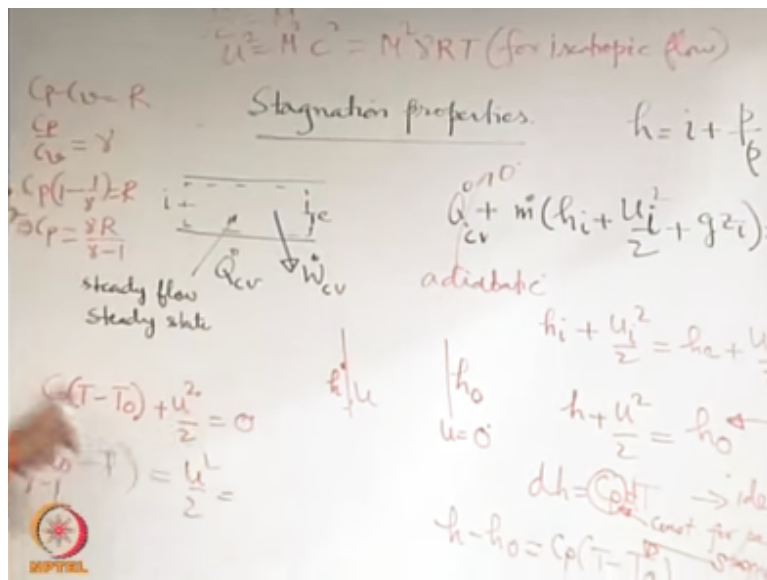 u² = M² c² = M² γRT (for isentropic flow)
Cp-Cv = R
Cp/Cv = γ
Cp(1-1/γ)=R
⇒Cp = γR/γ-1
Stagnation properties.
h = i + p/ρ
i
e
Q̇cv
Ẇcv
steady flow
Steady state
Q̇cv + ṁ(hi + ui²/2 + gzi) =
adiabatic
hi + ui²/2 = he +
h
u
h0
u=0
h + u²/2 = h0
(T-T0) + u²/2 = 0
γ-1
) = u²/2 =
dh = Cp dT →
const for
h-h0 = Cp(T-T0)
NPTEL